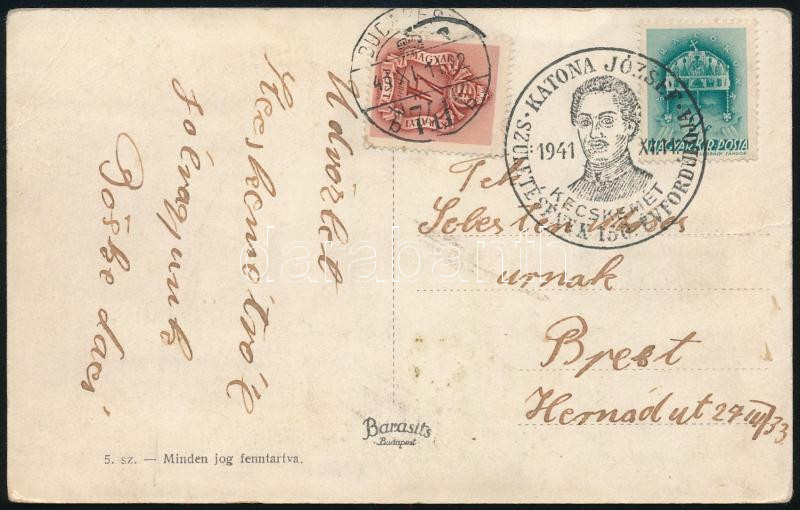 Üdvözlet
Kecskemétről
jól vagyunk
Böske
BUDAPEST
MAGYAR
KIRÁLYI
KATONA JÓZSEF
SZÜLETÉSÉNEK 150. ÉVFORDULÓJA
1941 XI.
KECSKEMÉT
MAGYAR KIR. POSTA
Sebestyén
urnak
Brest
Hernád ut 27 III/33
darabanth
Barasits
Budapest
5. sz. — Minden jog fenntartva.